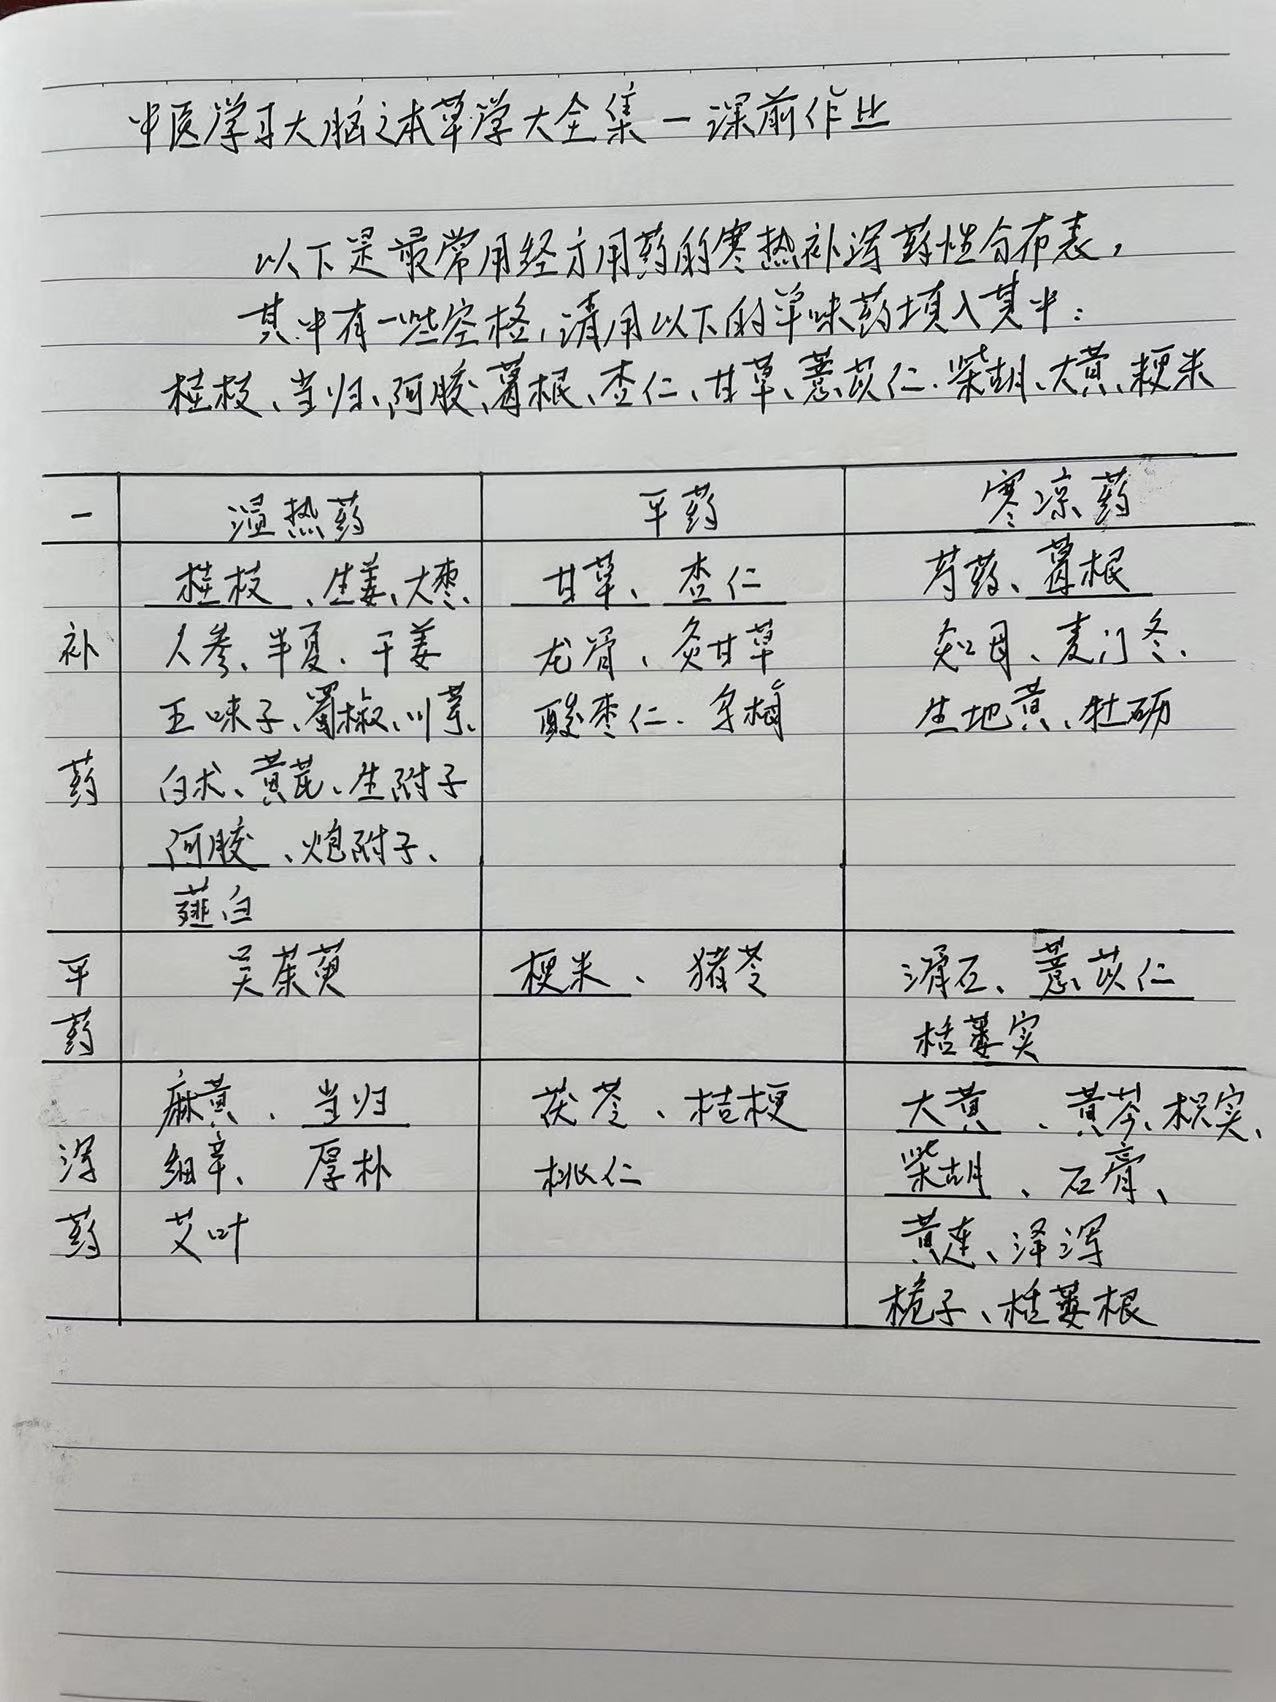 中医学习大脑之本草学大全集一课前作业
以下是最常用经方用药的寒热补泻药性分布表,
其中有一些空格,请用以下的单味药填入其中:
桂枝、当归、阿胶、葛根、杏仁、甘草、薏苡仁、柴胡、大黄、粳米
一 温热药 平药 寒凉药
桂枝、生姜、大枣、 甘草、杏仁 芍药、葛根
补 人参、半夏、干姜 龙骨、炙甘草 知母、麦门冬、
五味子、蜀椒、川芎、 酸枣仁、乌梅 生地黄、牡砺
药 白术、黄芪、生附子
阿胶、炮附子、
薤白
平 吴茱萸 粳米、猪苓 滑石、薏苡仁
药 栝蒌实
麻黄、当归 茯苓、桔梗 大黄、黄芩、枳实、
泻 细辛、厚朴 桃仁 柴胡、石膏、
药 艾叶 黄连、泽泻
栀子、栝蒌根